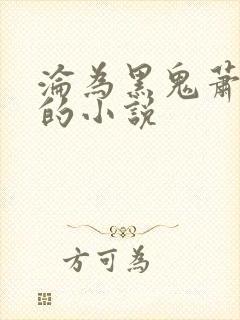 淪為黑鬼蕭
的小說
方可為